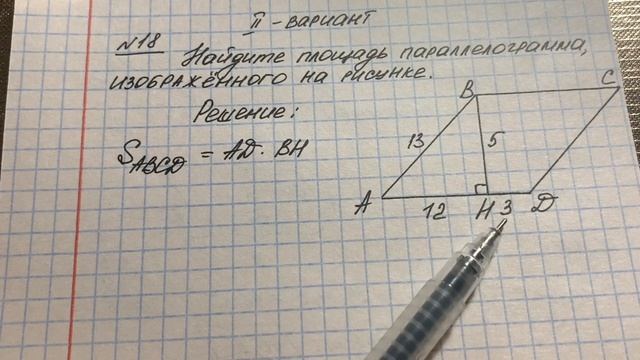 II - вариант
№18 Найдите площадь параллелограмма,
изображённого на рисунке.
Решение:
S ABCD = AD · BH
B
C
13
5
A
12
H
3
D